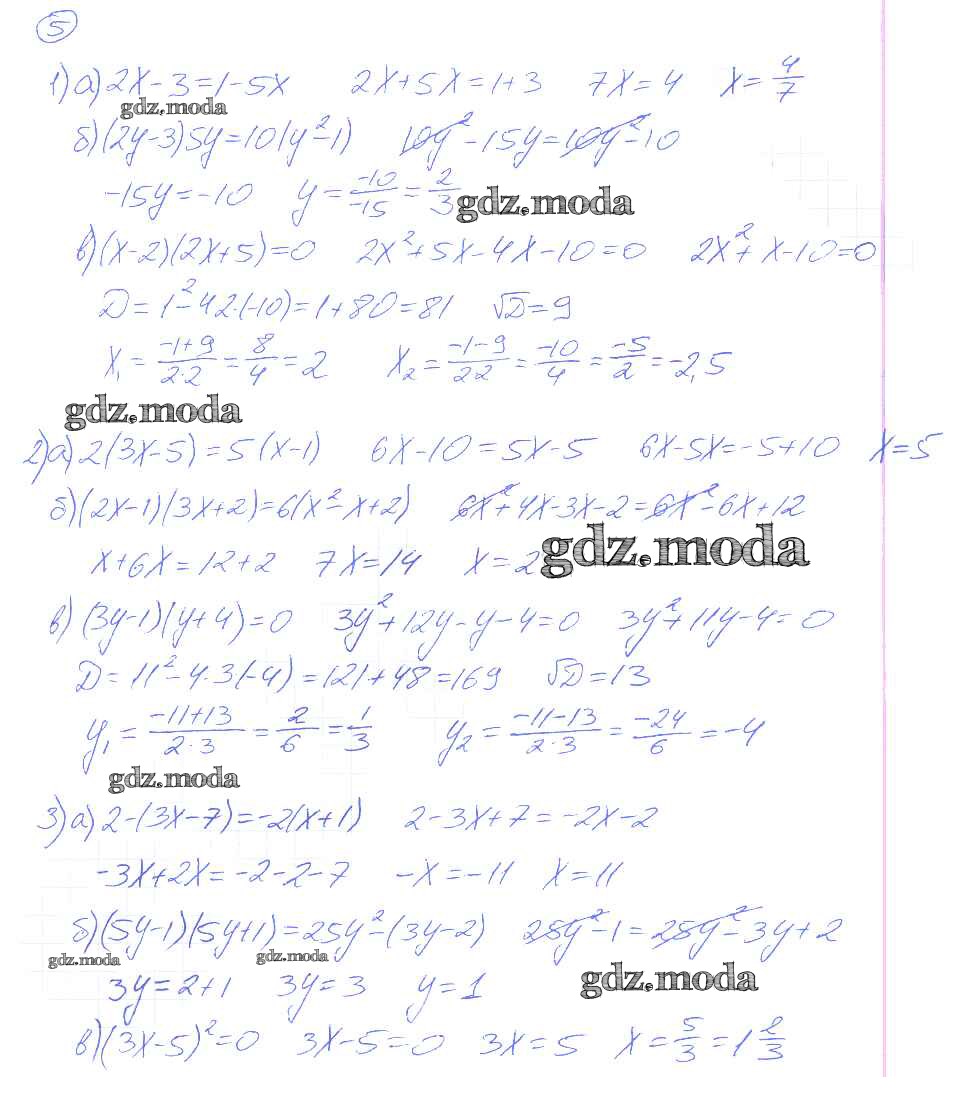 5
1) а) 2x - 3 = 1 - 5x   2x + 5x = 1 + 3   7x = 4   x = 4/7
gdz.moda
б) (2y-3)5y = 10(y²-1)   10y² - 15y = 10y² - 10
-15y = -10   y = -10/-15 = 2/3
gdz.moda
в) (x-2)(2x+5) = 0   2x² + 5x - 4x - 10 = 0   2x² + x - 10 = 0
D = 1² - 4·2·(-10) = 1 + 80 = 81   √D = 9
x₁ = -1+9/2·2 = 8/4 = 2   x₂ = -1-9/2·2 = -10/4 = -5/2 = -2,5
gdz.moda
2) а) 2(3x-5) = 5(x-1)   6x - 10 = 5x - 5   6x - 5x = -5 + 10   x = 5
б) (2x-1)(3x+2) = 6(x²-x+2)   6x² + 4x - 3x - 2 = 6x² - 6x + 12
x + 6x = 12 + 2   7x = 14   x = 2
gdz.moda
в) (3y-1)(y+4) = 0   3y² + 12y - y - 4 = 0   3y² + 11y - 4 = 0
D = 11² - 4·3·(-4) = 121 + 48 = 169   √D = 13
y₁ = -11+13/2·3 = 2/6 = 1/3   y₂ = -11-13/2·3 = -24/6 = -4
gdz.moda
3) а) 2 - (3x-7) = -2(x+1)   2 - 3x + 7 = -2x - 2
-3x + 2x = -2 - 2 - 7   -x = -11   x = 11
б) (5y-1)(5y+1) = 25y² - (3y-2)   25y² - 1 = 25y² - 3y + 2
gdz.moda   gdz.moda   gdz.moda
3y = 2 + 1   3y = 3   y = 1
в) (3x-5)² = 0   3x - 5 = 0   3x = 5   x = 5/3 = 1 2/3